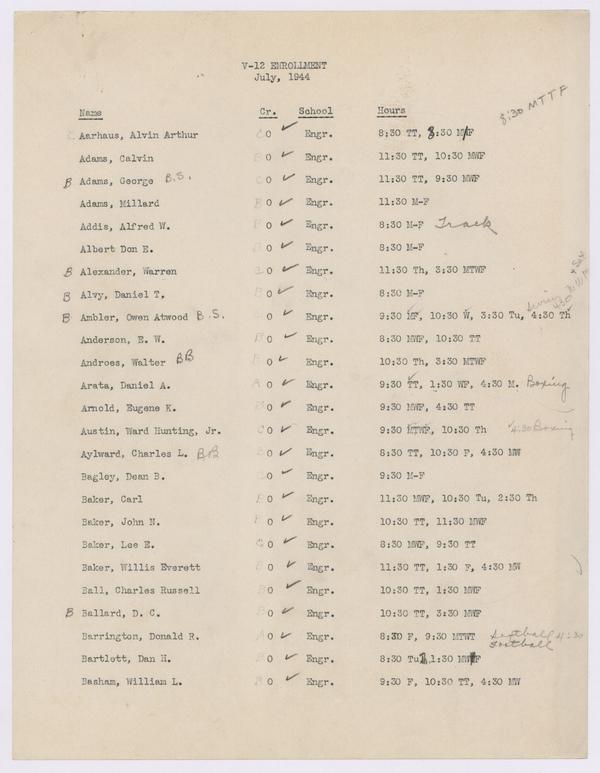 V-12 ENROLLMENT
July, 1944
8:30 MTTF
Name Cr. School Hours
Aarhaus, Alvin Arthur 0 ✓ Engr. 8:30 TT, 8:30 MF
Adams, Calvin 0 ✓ Engr. 11:30 TT, 10:30 MWF
B Adams, George B.S. 0 ✓ Engr. 11:30 TT, 9:30 MWF
Adams, Millard 0 ✓ Engr. 11:30 M-F
Addis, Alfred W. 0 ✓ Engr. 8:30 M-F Track
Albert Don E. 0 ✓ Engr. 8:30 M-F
B Alexander, Warren 0 ✓ Engr. 11:30 Th, 3:30 MTWF
B Alvy, Daniel T. 0 ✓ Engr. 8:30 M-F
B Ambler, Owen Atwood B.S. 0 ✓ Engr. 9:30 MF, 10:30 W, 3:30 Tu, 4:30 Th
Anderson, E. W. 0 ✓ Engr. 8:30 MWF, 10:30 TT
Androes, Walter BB 0 ✓ Engr. 10:30 Th, 3:30 MTWF
Arata, Daniel A. 0 ✓ Engr. 9:30 TT, 1:30 WF, 4:30 M. Boxing
Arnold, Eugene K. 0 ✓ Engr. 9:30 MWF, 4:30 TT
Austin, Ward Hunting, Jr. 0 ✓ Engr. 9:30 MTWF, 10:30 Th 4:30 Boxing
Aylward, Charles L. BB 0 ✓ Engr. 8:30 TT, 10:30 F, 4:30 MW
Bagley, Dean B. 0 ✓ Engr. 9:30 M-F
Baker, Carl 0 ✓ Engr. 11:30 MWF, 10:30 Tu, 2:30 Th
Baker, John N. 0 ✓ Engr. 10:30 TT, 11:30 MWF
Baker, Lee E. 0 ✓ Engr. 8:30 MWF, 9:30 TT
Baker, Willis Everett 0 ✓ Engr. 11:30 TT, 1:30 F, 4:30 MW
Ball, Charles Russell 0 ✓ Engr. 10:30 TT, 1:30 MWF
B Ballard, D. C. 0 ✓ Engr. 10:30 TT, 3:30 MWF
Barrington, Donald R. 0 ✓ Engr. 8:30 F, 9:30 MTWT Football 4:30
Football
Bartlett, Dan H. 0 ✓ Engr. 8:30 Tu, 1:30 MWF
Basham, William L. 0 ✓ Engr. 9:30 F, 10:30 TT, 4:30 MW